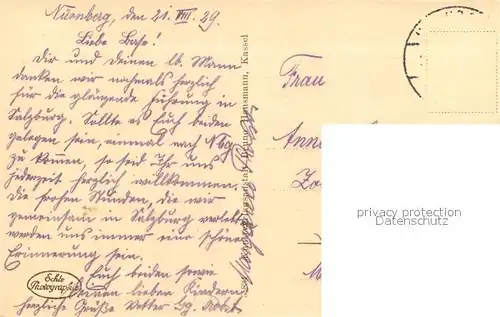 Nürnberg, den 21. VIII. 29.
Liebe Base!
Dir und deinem lb. Mann
danken wir nochmals herzlich
für die glänzende Führung in
Salzburg. Sollte es Euch beiden
gelegen sein, einmal nach Nbg
zu kommen, so seid Ihr uns
jederzeit herzlich willkommen.
Die frohen Stunden, die wir
gemeinsam in Salzburg verlebt
werden uns immer eine schöne
Erinnerung sein.
Euch beiden sowie
deinen lieben Kindern
herzliche Grüße Vetter Gg.
Echte
Photographie
Kunstmann, Kassel
Frau
privacy protection
Datenschutz